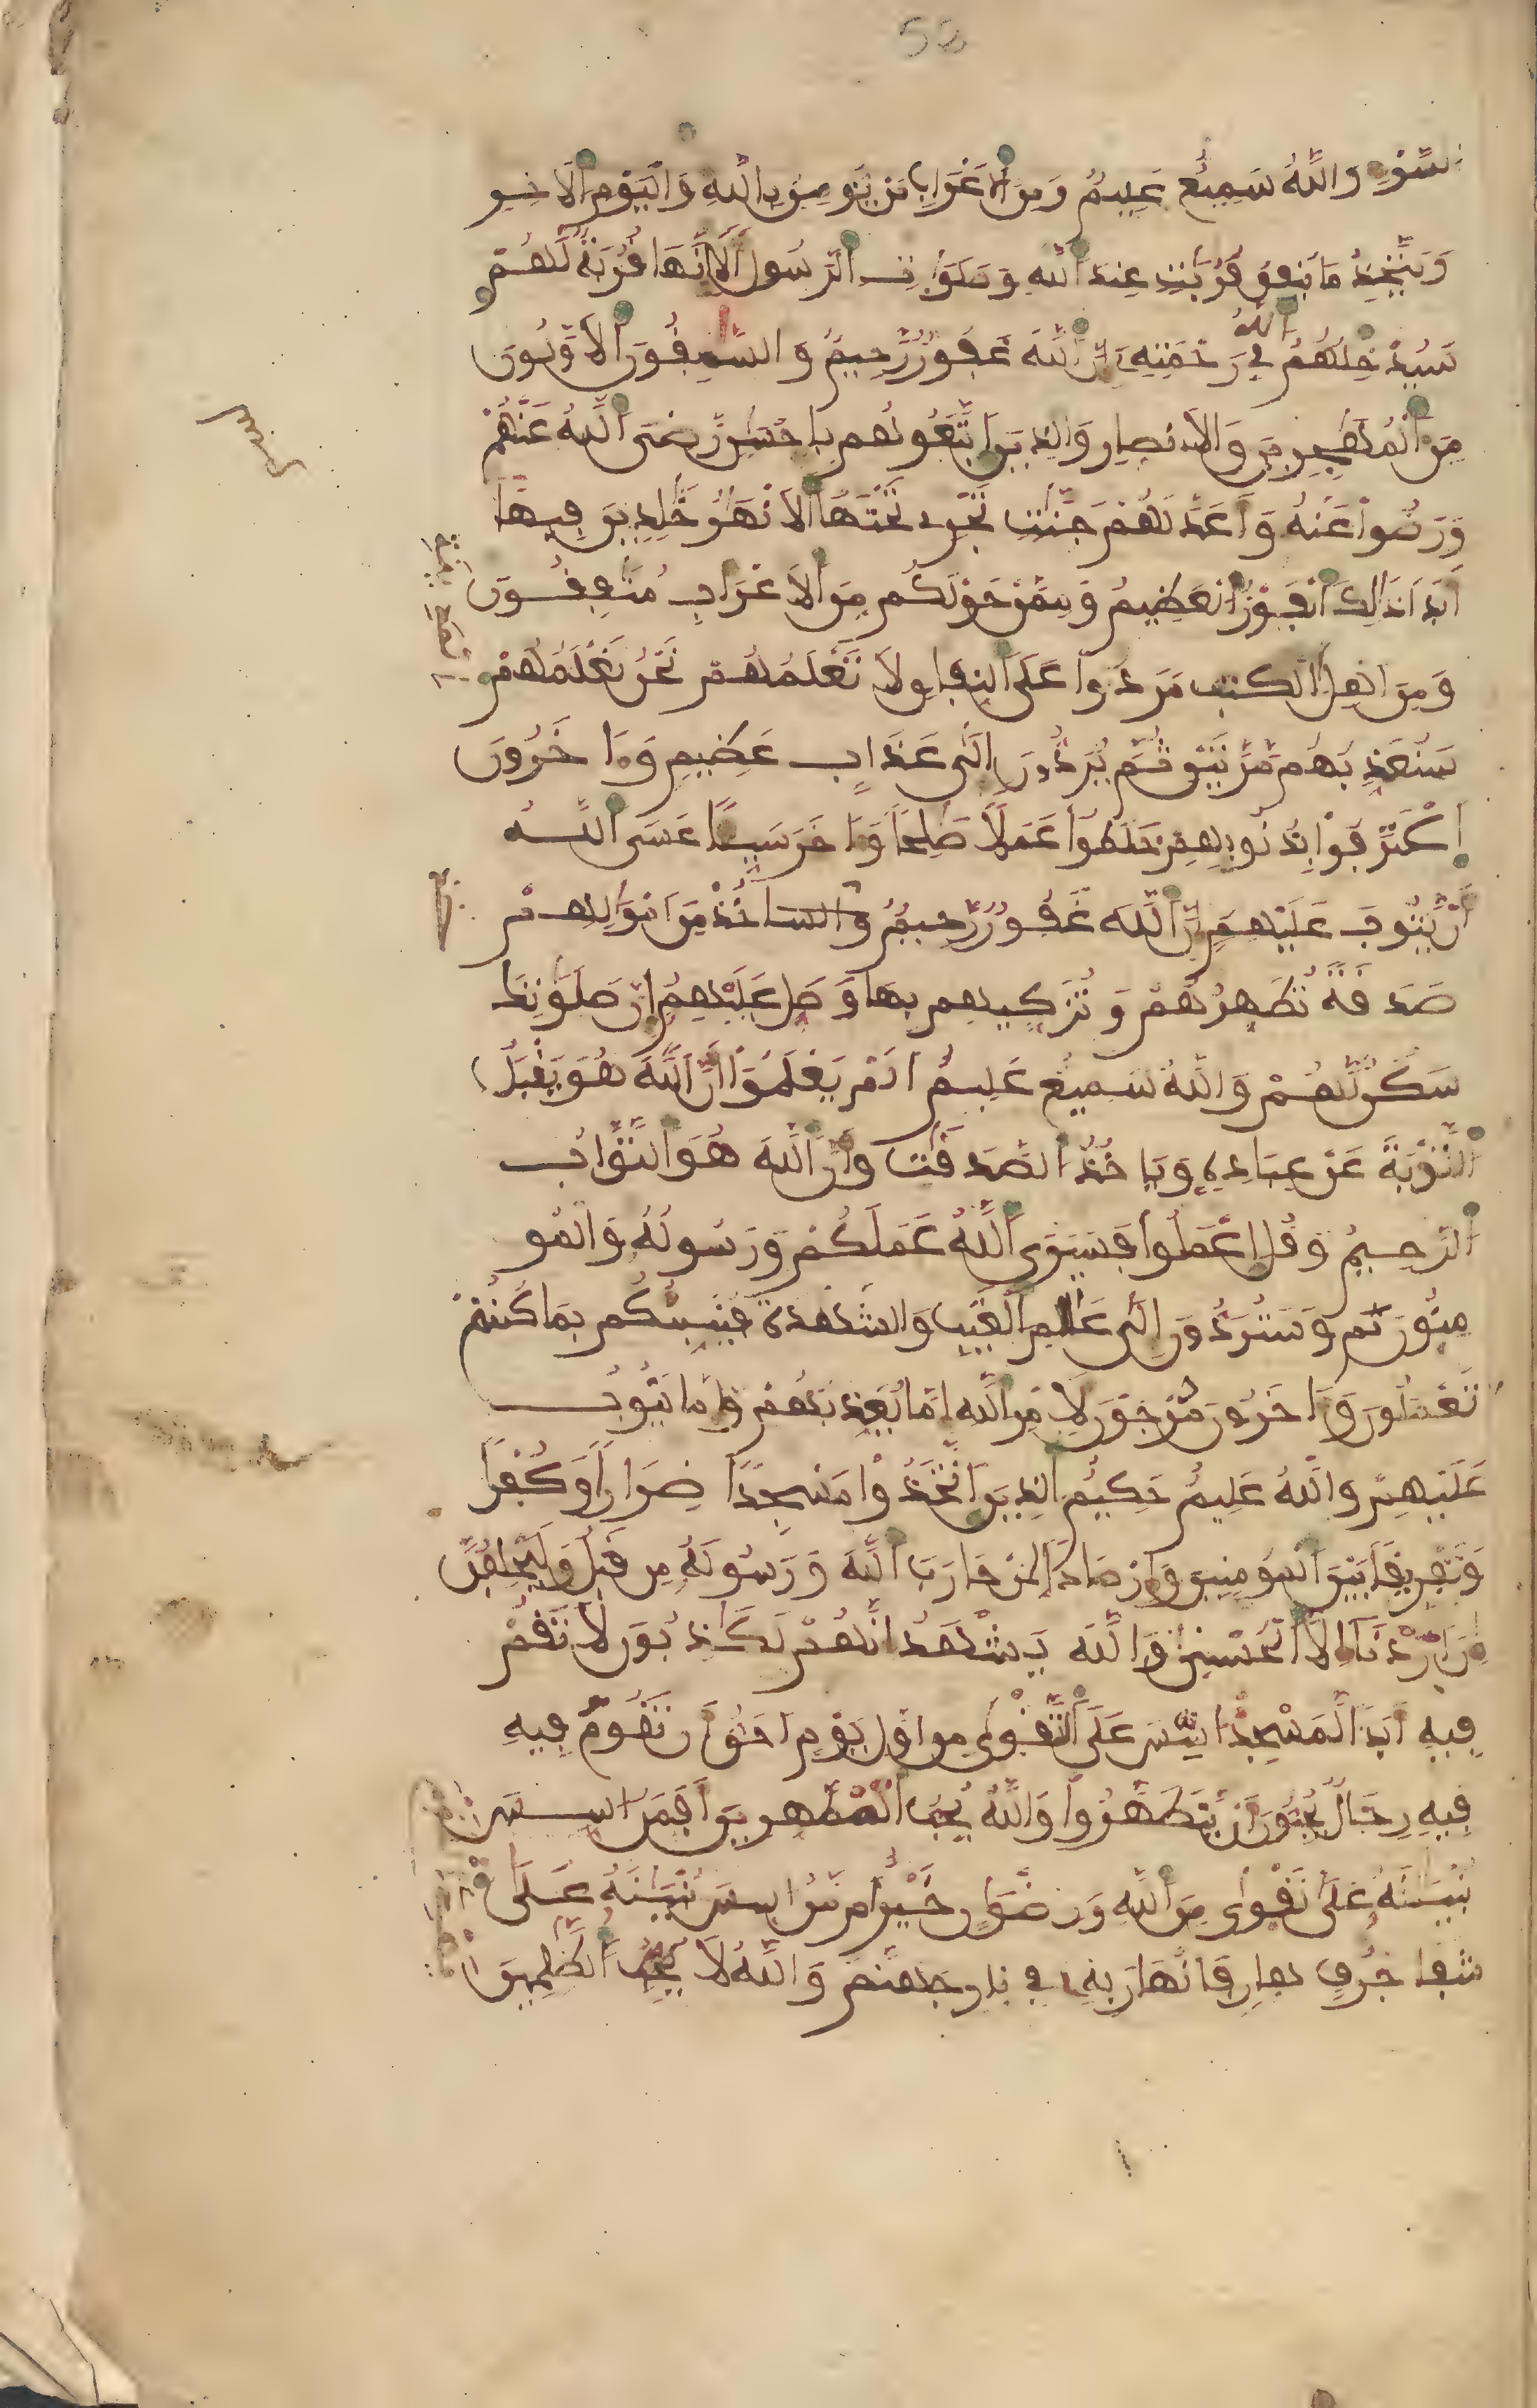 58
السَّوْءِ وَاللَّهُ سَمِيعٌ عَلِيمٌ وَمِنَ الَاعْرَابِ مَنْ يُّومِنُ بِاللَّهِ وَالْيَوْمِ الَاخِرِ
وَيَتَّخِذُ مَا يُنفِقُ قُرُبَٰتٍ عِندَ اللَّهِ وَصَلَوَٰتِ الرَّسُولِ أَلَا إِنَّهَا قُرُبَةٌ لَّهُمْ
سَيُدْخِلُهُمُ اللَّهُ فِي رَحْمَتِهِ إِنَّ اللَّهَ غَفُورٌ رَّحِيمٌ وَالسَّٰبِقُونَ الَاوَّلُونَ
مِنَ الْمُهَٰجِرِينَ وَالَانصِارِ وَالذِينَ اتَّبَعُوهُم بِإِحْسَٰنٍ رَّضِيَ اللَّهُ عَنْهُمْ
وَرَضُوا عَنْهُ وَأَعَدَّ لَهُمْ جَنَّٰتٍ تَجْرِي تَحْتَهَا الَانْهَٰرُ خَٰلِدِينَ فِيهَا
أَبَدًا ذَٰلِكَ الْفَوْزُ الْعَظِيمُ وَمِمَّنْ حَوْلَكُم مِّنَ الَاعْرَابِ مُنَٰفِقُونَ
وَمِنَ اهْلِ الكتب مَرَدُوا عَلَى النِّفَاقِ لَا تَعْلَمُهُمْ نَحْنُ نَعْلَمُهُمْ
سَنُعَذِّبُهُم مَّرَّتَيْنِ ثُمَّ يُرَدُّونَ إِلَىٰ عَذَابٍ عَظِيمٍ وَءَاخَرُونَ
اعْتَرَفُوا بِذُنُوبِهِمْ خَلَطُوا عَمَلًا صَٰلِحًا وَءَاخَرَ سَيِّئًا عَسَى اللَّهُ
أَنْ يَّتُوبَ عَلَيْهِمُ إِنَّ اللَّهَ غَفُورٌ رَّحِيمٌ خُذْ مِنَ امْوَٰلِهِمْ
صَدَقَةً تُطَهِّرُهُمْ وَتُزَكِّيهِم بِهَا وَصَلِّ عَلَيْهِمُ إِنَّ صَلَوَٰتِكَ
سَكَنٌ لَّهُمْ وَاللَّهُ سَمِيعٌ عَلِيمٌ أَلَمْ يَعْلَمُوا أَنَّ اللَّهَ هُوَ يَقْبَلُ
التَّوْبَةَ عَنْ عِبَادِهِ وَيَاخُذُ الصَّدَقَٰتِ وَأَنَّ اللَّهَ هُوَ التَّوَّابُ
الرَّحِيمُ وَقُلِ اعْمَلُوا فَسَيَرَى اللَّهُ عَمَلَكُمْ وَرَسُولُهُ وَالْمُو
مِنُونَ ثم وَسَتُرَدُّونَ إِلَىٰ عَٰلِمِ الْغَيْبِ وَالشَّهَٰدَةِ فَيُنَبِّئُكُم بِمَا كُنتُمْ
تَعْمَلُونَ وَءَاخَرُونَ مُرْجَوْنَ لِأَمْرِ اللَّهِ إِمَّا يُعَذِّبُهُمْ وَإِمَّا يَتُوبُ
عَلَيْهِمْ وَاللَّهُ عَلِيمٌ حَكِيمٌ الذِينَ اتَّخَذُوا مَسْجِدًا ضِرَارًا وَكُفْرًا
وَتَفْرِيقًا بَيْنَ الْمُومِنِينَ وَإِرْصَادًا لِّمَنْ حَارَبَ اللَّهَ وَرَسُولَهُ مِن قَبْلُ وَلَيَحْلِفُنَّ
إِنَ ارَدْنَا إِلَّا الْحُسْنَىٰ وَاللَّهُ يَشْهَدُ إِنَّهُمْ لَكَٰذِبُونَ لَا تَقُمْ
فِيهِ أَبَدًا لَّمَسْجِدٌ اسِّسَ عَلَى التَّقْوَىٰ مِنَ اوَّلِ يَوْمٍ احَقُّ أَن تَقُومَ فِيهِ
فِيهِ رِجَالٌ يُحِبُّونَ أَنْ يَّتَطَهَّرُوا وَاللَّهُ يُحِبُّ الْمُطَّهِّرِينَ أَفَمَنُ اسِّسَ
بُنْيَٰنُهُ عَلَىٰ تَقْوَىٰ مِنَ اللَّهِ وَرِضْوَٰنٍ خَيْرٌ أَم مَّنُ اسِّسَ بُنْيَٰنُهُ عَلَىٰ
شَفَا جُرُفٍ هَارٍ فَانْهَارَ بِهِ فِي نَارِ جَهَنَّمَ وَاللَّهُ لَا يُحِبُّ الظَّٰلِمِينَ